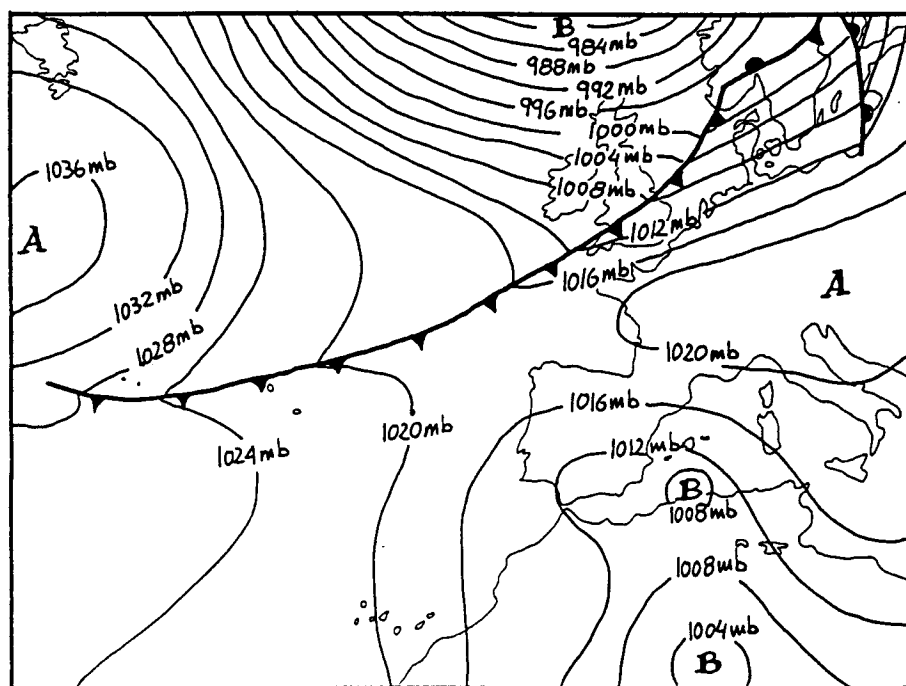 B
984mb
988mb
992mb
996mb
1000mb
1004mb
1008mb
1036mb
A
1012mb
1016mb
A
1032mb
1028mb
1020mb
1016mb
1020mb
1012mb
1024mb
B
1008mb
1008mb
1004mb
B